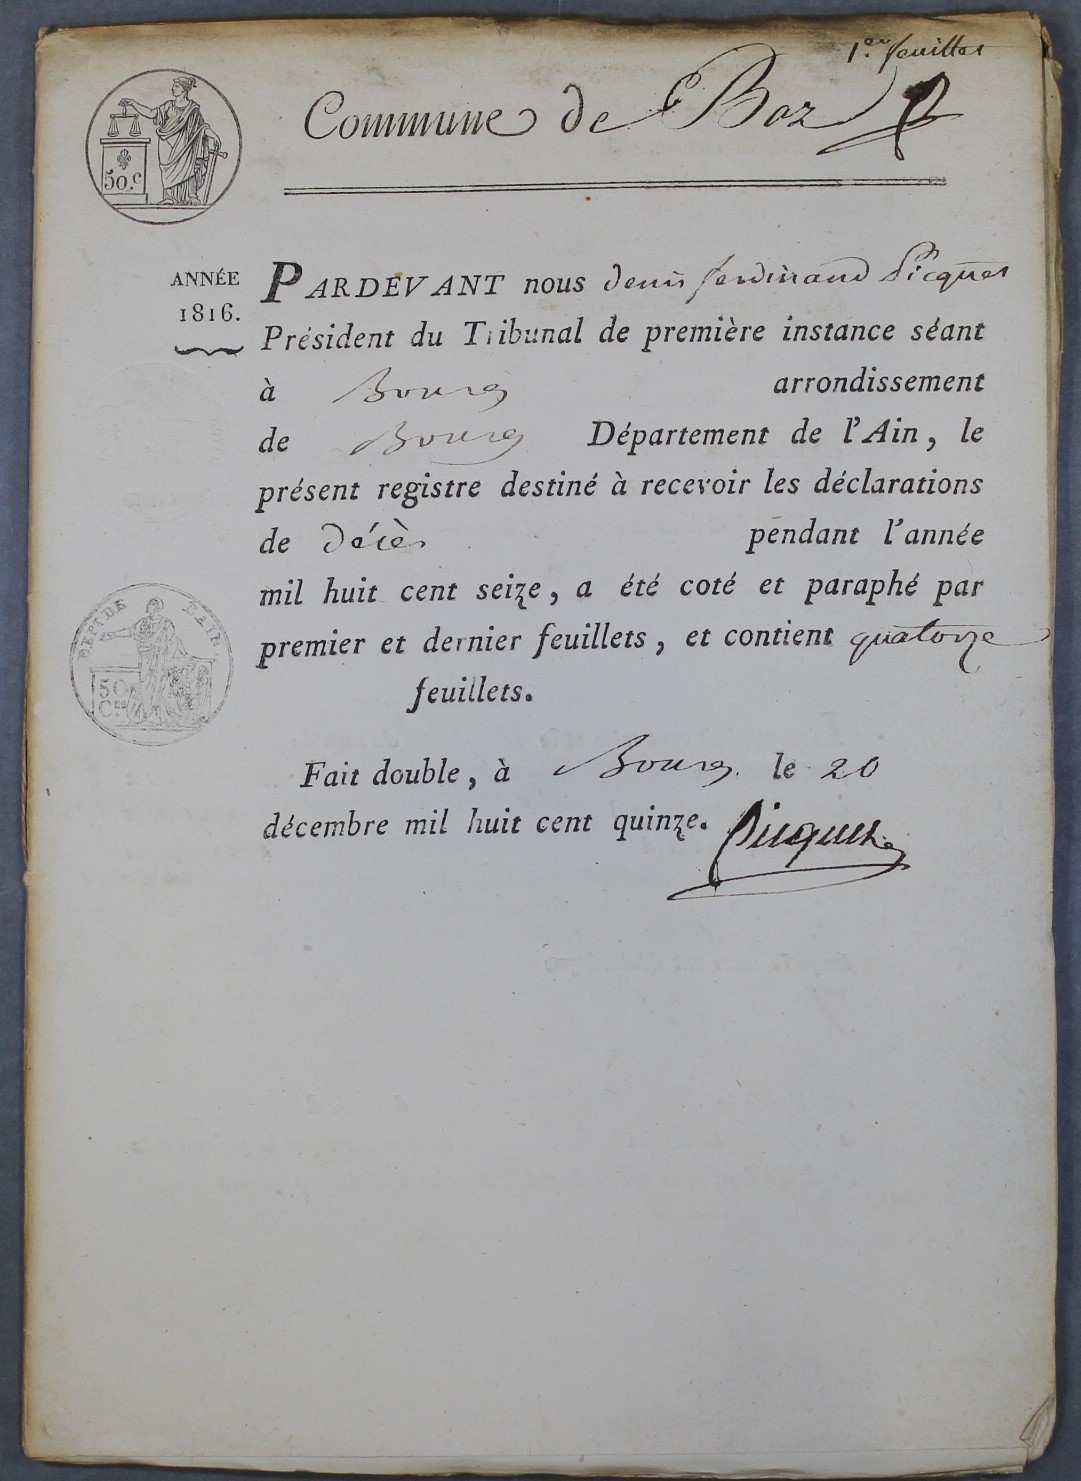 1er feuillet
Commune de Boz
50.c
ANNÉE
1816.
PARDEVANT nous denis ferdinand Picquet
Président du Tribunal de première instance séant
à Bourg arrondissement
de Bourg Département de l'Ain, le
présent registre destiné à recevoir les déclarations
de décès pendant l'année
mil huit cent seize, a été coté et paraphé par
premier et dernier feuillets, et contient quatorze
feuillets.
DEPT DE L'AIN
50
Cmes
Fait double, à Bourg le 20
décembre mil huit cent quinze.
Picquet